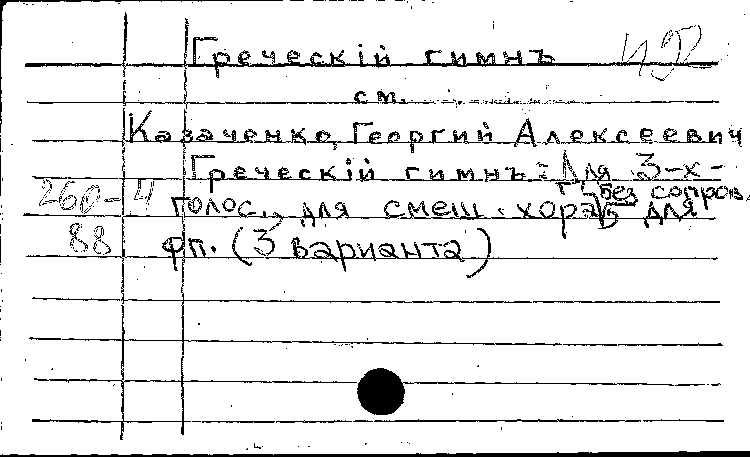 Греческій гимнъ 492
см.
Казаченко, Георгий Алексеевич
Греческій гимнъ: Для 3-х-
без сопров.
260-4 голос., для смеш. хора, для
88 фп. (3 варианта)